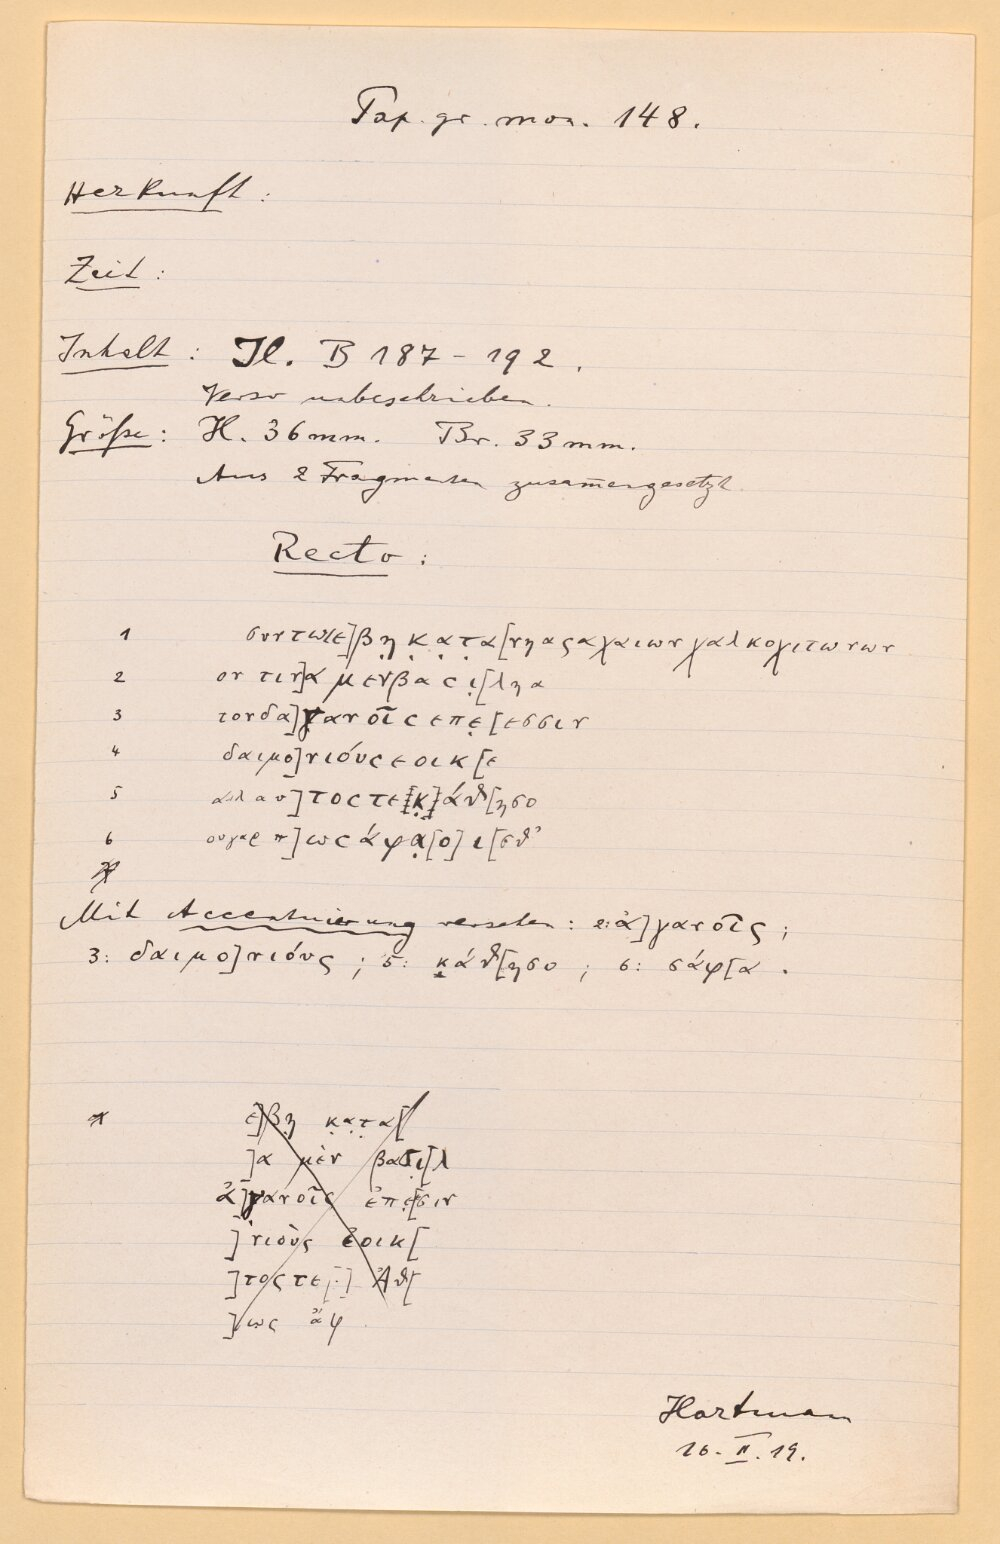 Pap. gr. mon. 148.
Herkunft:
Zeit:
Inhalt: Il. B 187 – 192.
Verso unbeschrieben.
Größe: H. 36 mm. Br. 33 mm.
Aus 2 Fragmenten zusammengesetzt.
Recto:
1 συντωι(ε]βη̣ κ̣α̣τ̣α[νηαςαχαιωνχαλκοχιτωνων
2 οντιν]α μενβαcι̣[ληα
3 τονδα]γανοῖc επε̣[εσσιν
4 δαιμο]νιόυςεοικ[ε
5 αλλαυ]τοcτε[κ̣]άθ[ησο
6 ουγαρ π]ωcάφα̣[ο]ι[σθ'
Mit Accentuierung versehen: 2: ἀ]γανοῖς;
3: δαιμο]νιόυς; 5: κ̣άθ[ησο; 6: σάφ[α.
ε]βη̣ κ̣α̣τ̣α[
]α μὲν βασι̣[λ
ἀ]γανοῖς ἐπε̣[σιν
]νιοὺς ἐοικ[
]τοςτε[·] Ἀθ[
]ως ἂφ
Hartmann
16. II. 19.